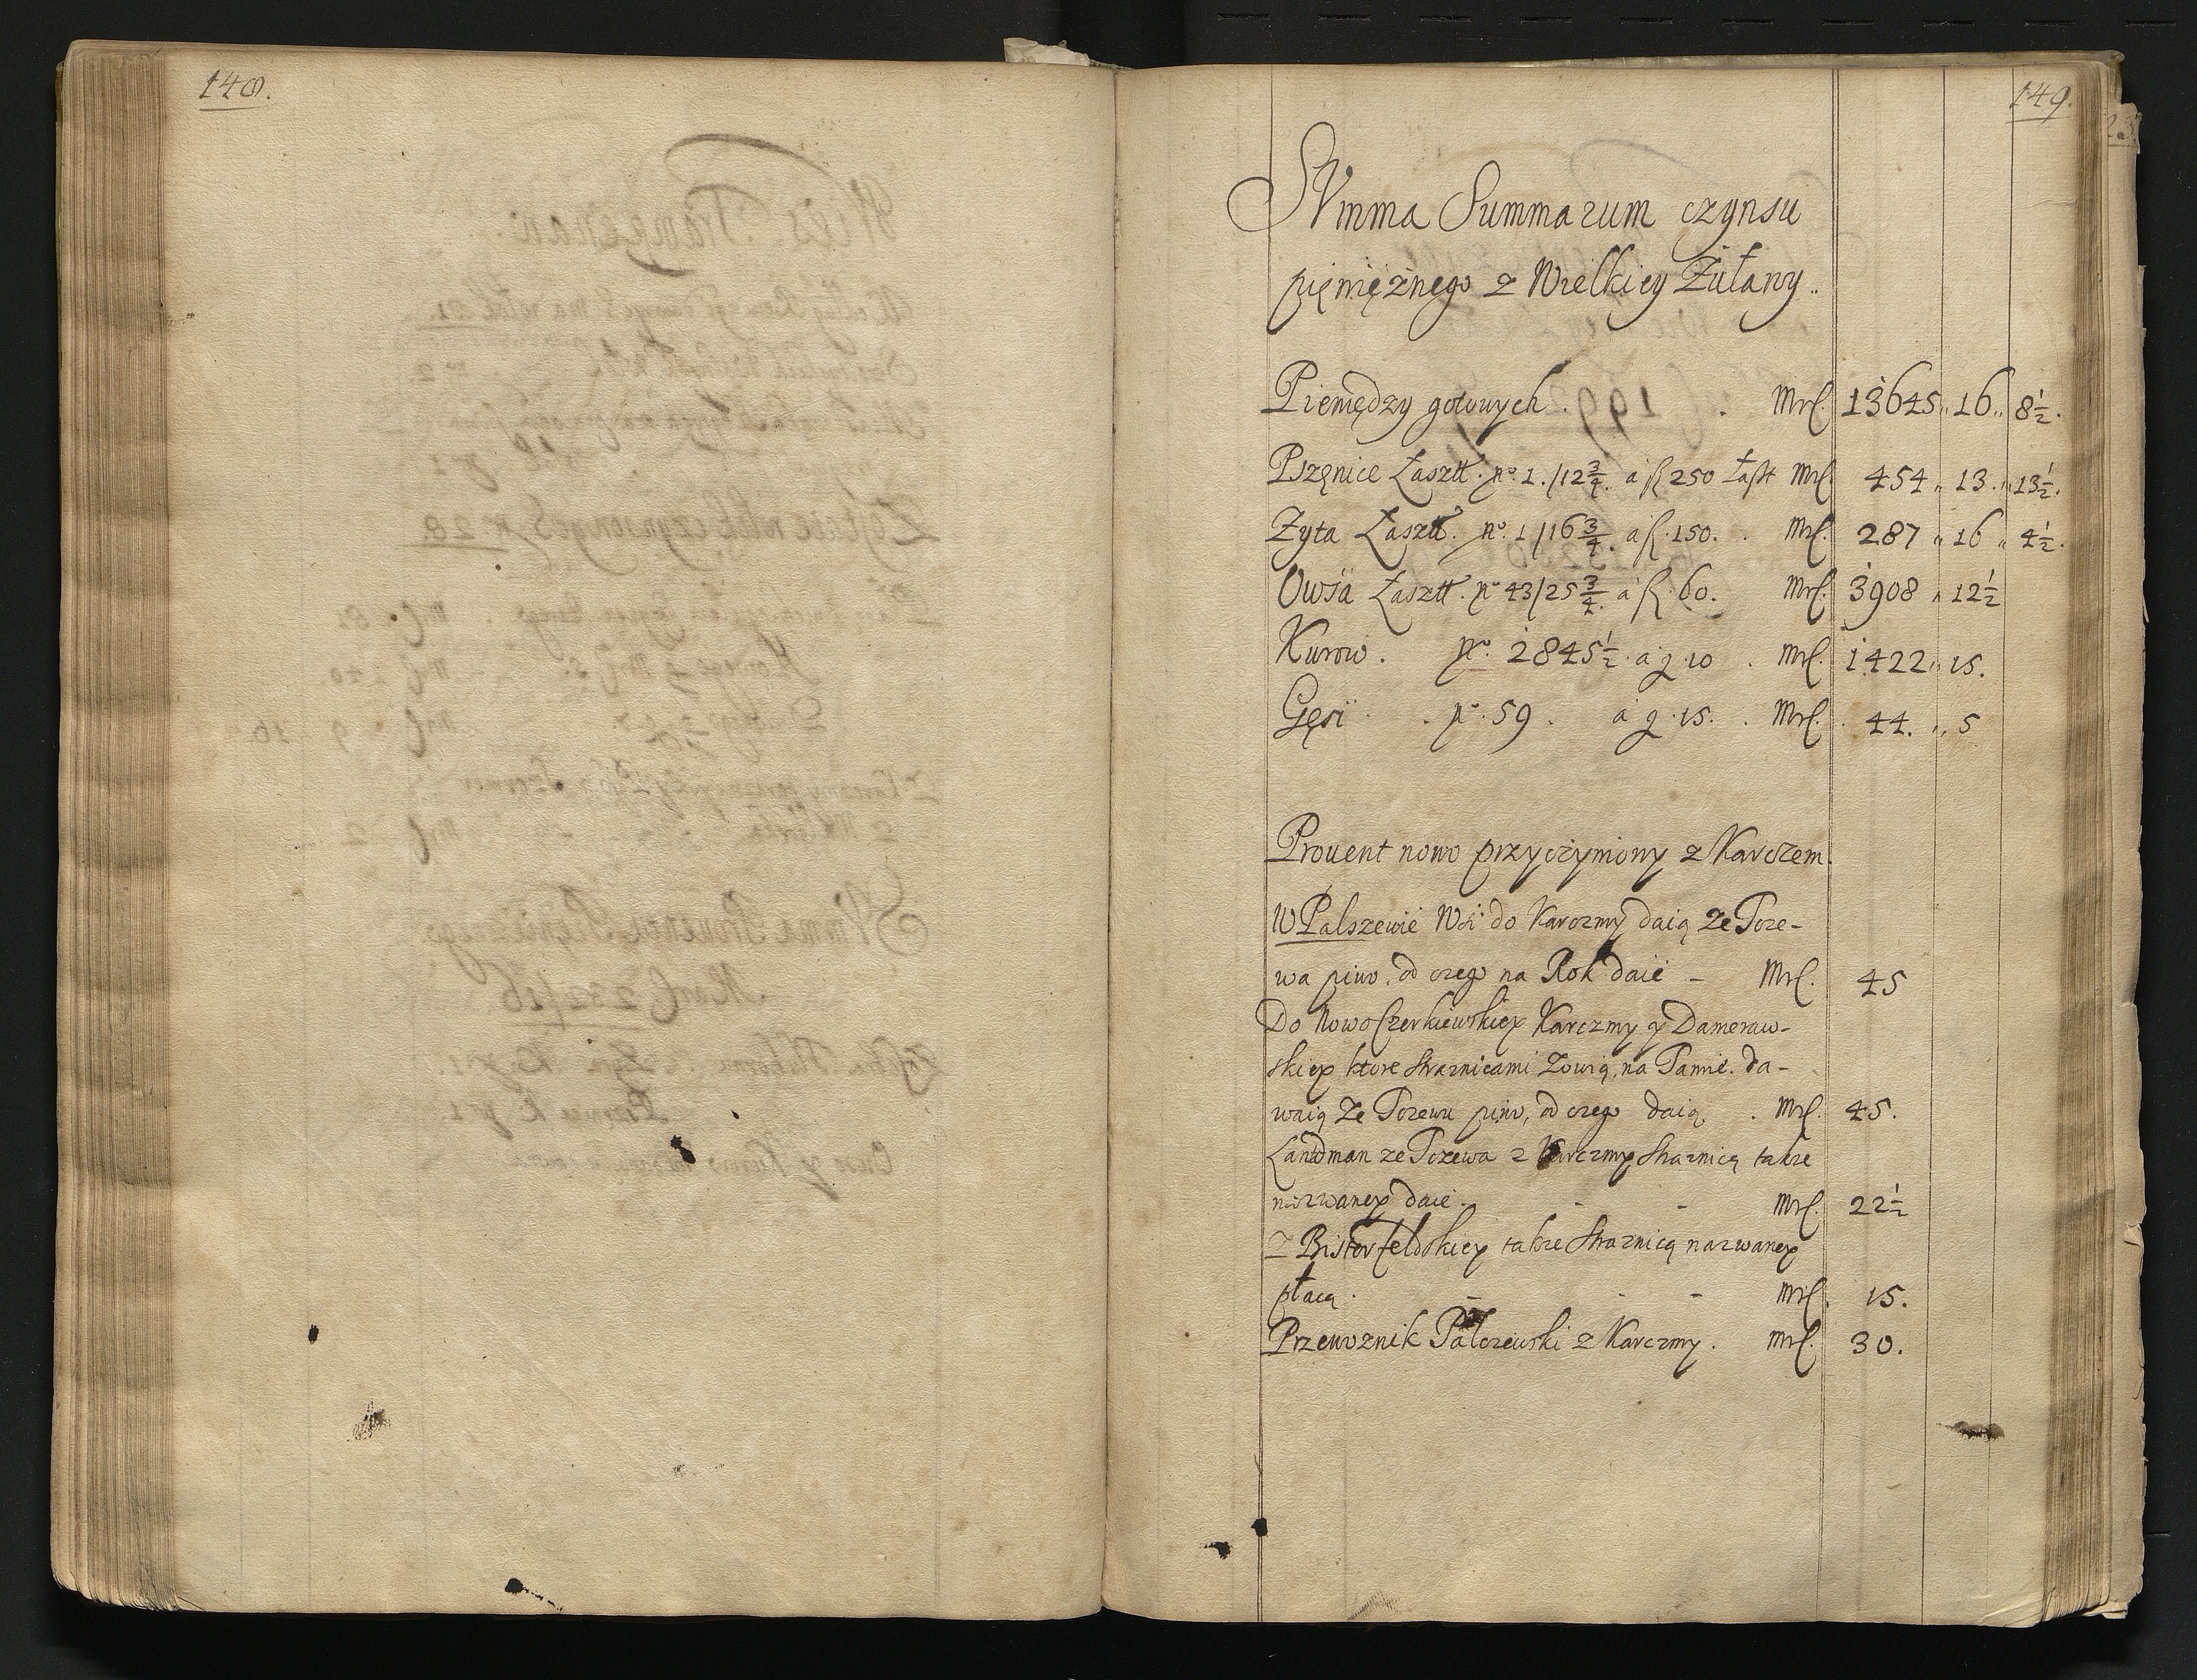 148.
149.
SVmma Summarum czynsu
pięnięznego z Wielkiey Żuławy..
Pieniędzy gotowych . . Mrſ. 13645,, 16,, 8½.
Pszęnice Łasztt. nº. 1./12¾. á ſ 250 Łaſtt Mrſ. 454 ,, 13 ,, 13½.
Zyta Łasztt. nº. 1/16¾. á ſ. 150. . Mrſ. 287 ,, 16 ,, 4½.
Owsa Łasztt. nº 43/25¾. á ſ. 60. Mrſ. 3908 ,, 12½
Kurow . nº. 2845½. á g 10 . Mrſ. 1422,, 15.
Gęsi . nº. 59 . á g. 15. . Mrſ. 44. ,, 5
Prouent nowo przyczyniony z Karczem.
W Palszewie Wsi do Karczmy daią ze Tcze-
wa piwo, od czego na Rok daie – Mrſ. 45
Do Nowoſzerkiewskiey Karczmy y Dameraw-
skiey ktore Straznicami zowią, na Tamie. da-
waią ze Tczewu piwo, od czego daią . Mrſ. 45.
Landman ze Tczewa z Karczmy Straznicą takze
nazwaney daie . - - Mrſ. 22½
Z Bisterfeldskiey takze Straznicą nazwaney
płacą . - - - Mrſ. 15.
Przewoznik Palczewski z Karczmy . Mrſ. 30.